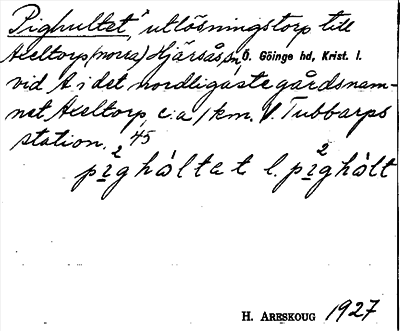 Pighultet, utlösningstorp till
Axeltorp (norra) Hjärsås sn, Ö. Göinge hd, Krist. l.
vid A. i det nordligaste gårdsnam-
net Axeltorp, c:a 1 km. V. Tubbarps
station. 45
pighå̀ltet l. pighå̀lt
H. Areskoug 1927